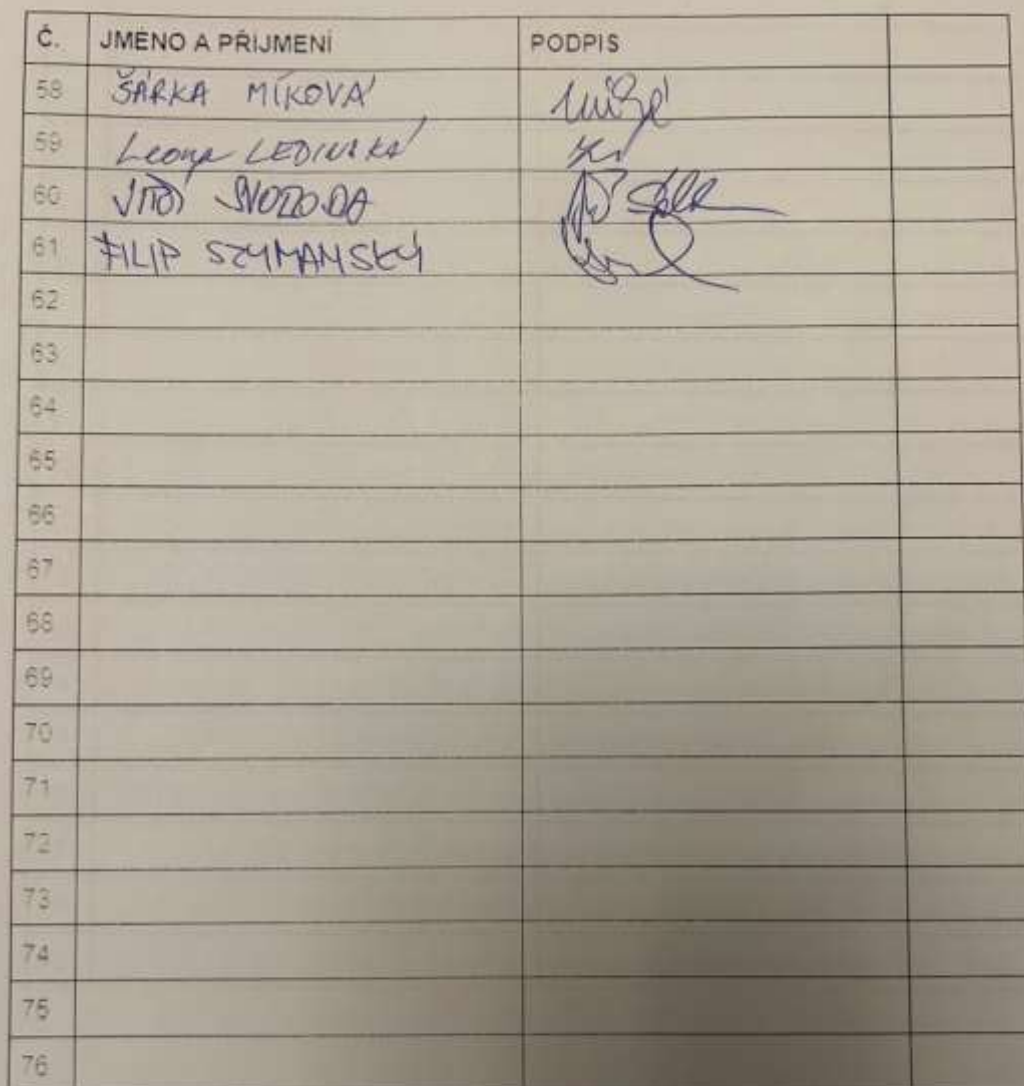 Č. JMÉNO A PŘIJMENÍ PODPIS
58 ŠÁRKA MÍKOVÁ
59 Leona LEDINSKÁ
60 JIŘÍ SVOBODA
61 FILIP SZYMANSKÝ
62
63
64
65
66
67
68
69
70
71
72
73
74
75
76